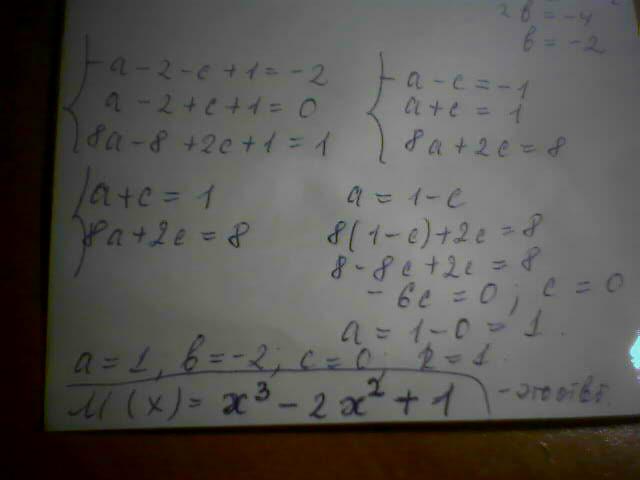 2в = -4
в = -2
-a - 2 - c + 1 = -2
a - 2 + c + 1 = 0
8a - 8 + 2c + 1 = 1
-a - c = -1
a + c = 1
8a + 2c = 8
a + c = 1
8a + 2c = 8
a = 1 - c
8(1 - c) + 2c = 8
8 - 8c + 2c = 8
- 6c = 0; c = 0
a = 1 - 0 = 1.
a = 1, в = -2; c = 0; k = 1.
M(x) = x³ - 2x² + 1 - это ответ.